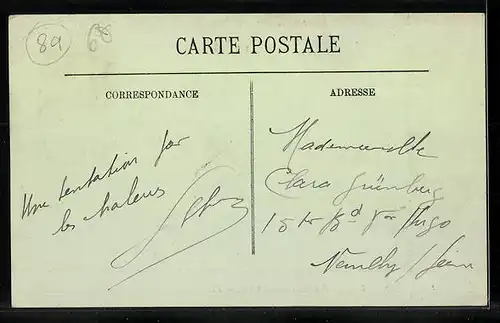 89
CARTE POSTALE
CORRESPONDANCE
ADRESSE
Une tentation par
les chaleurs
Mademoiselle
Clara Grünberg
15 ter Bd Vor Hugo
Neuilly / Seine